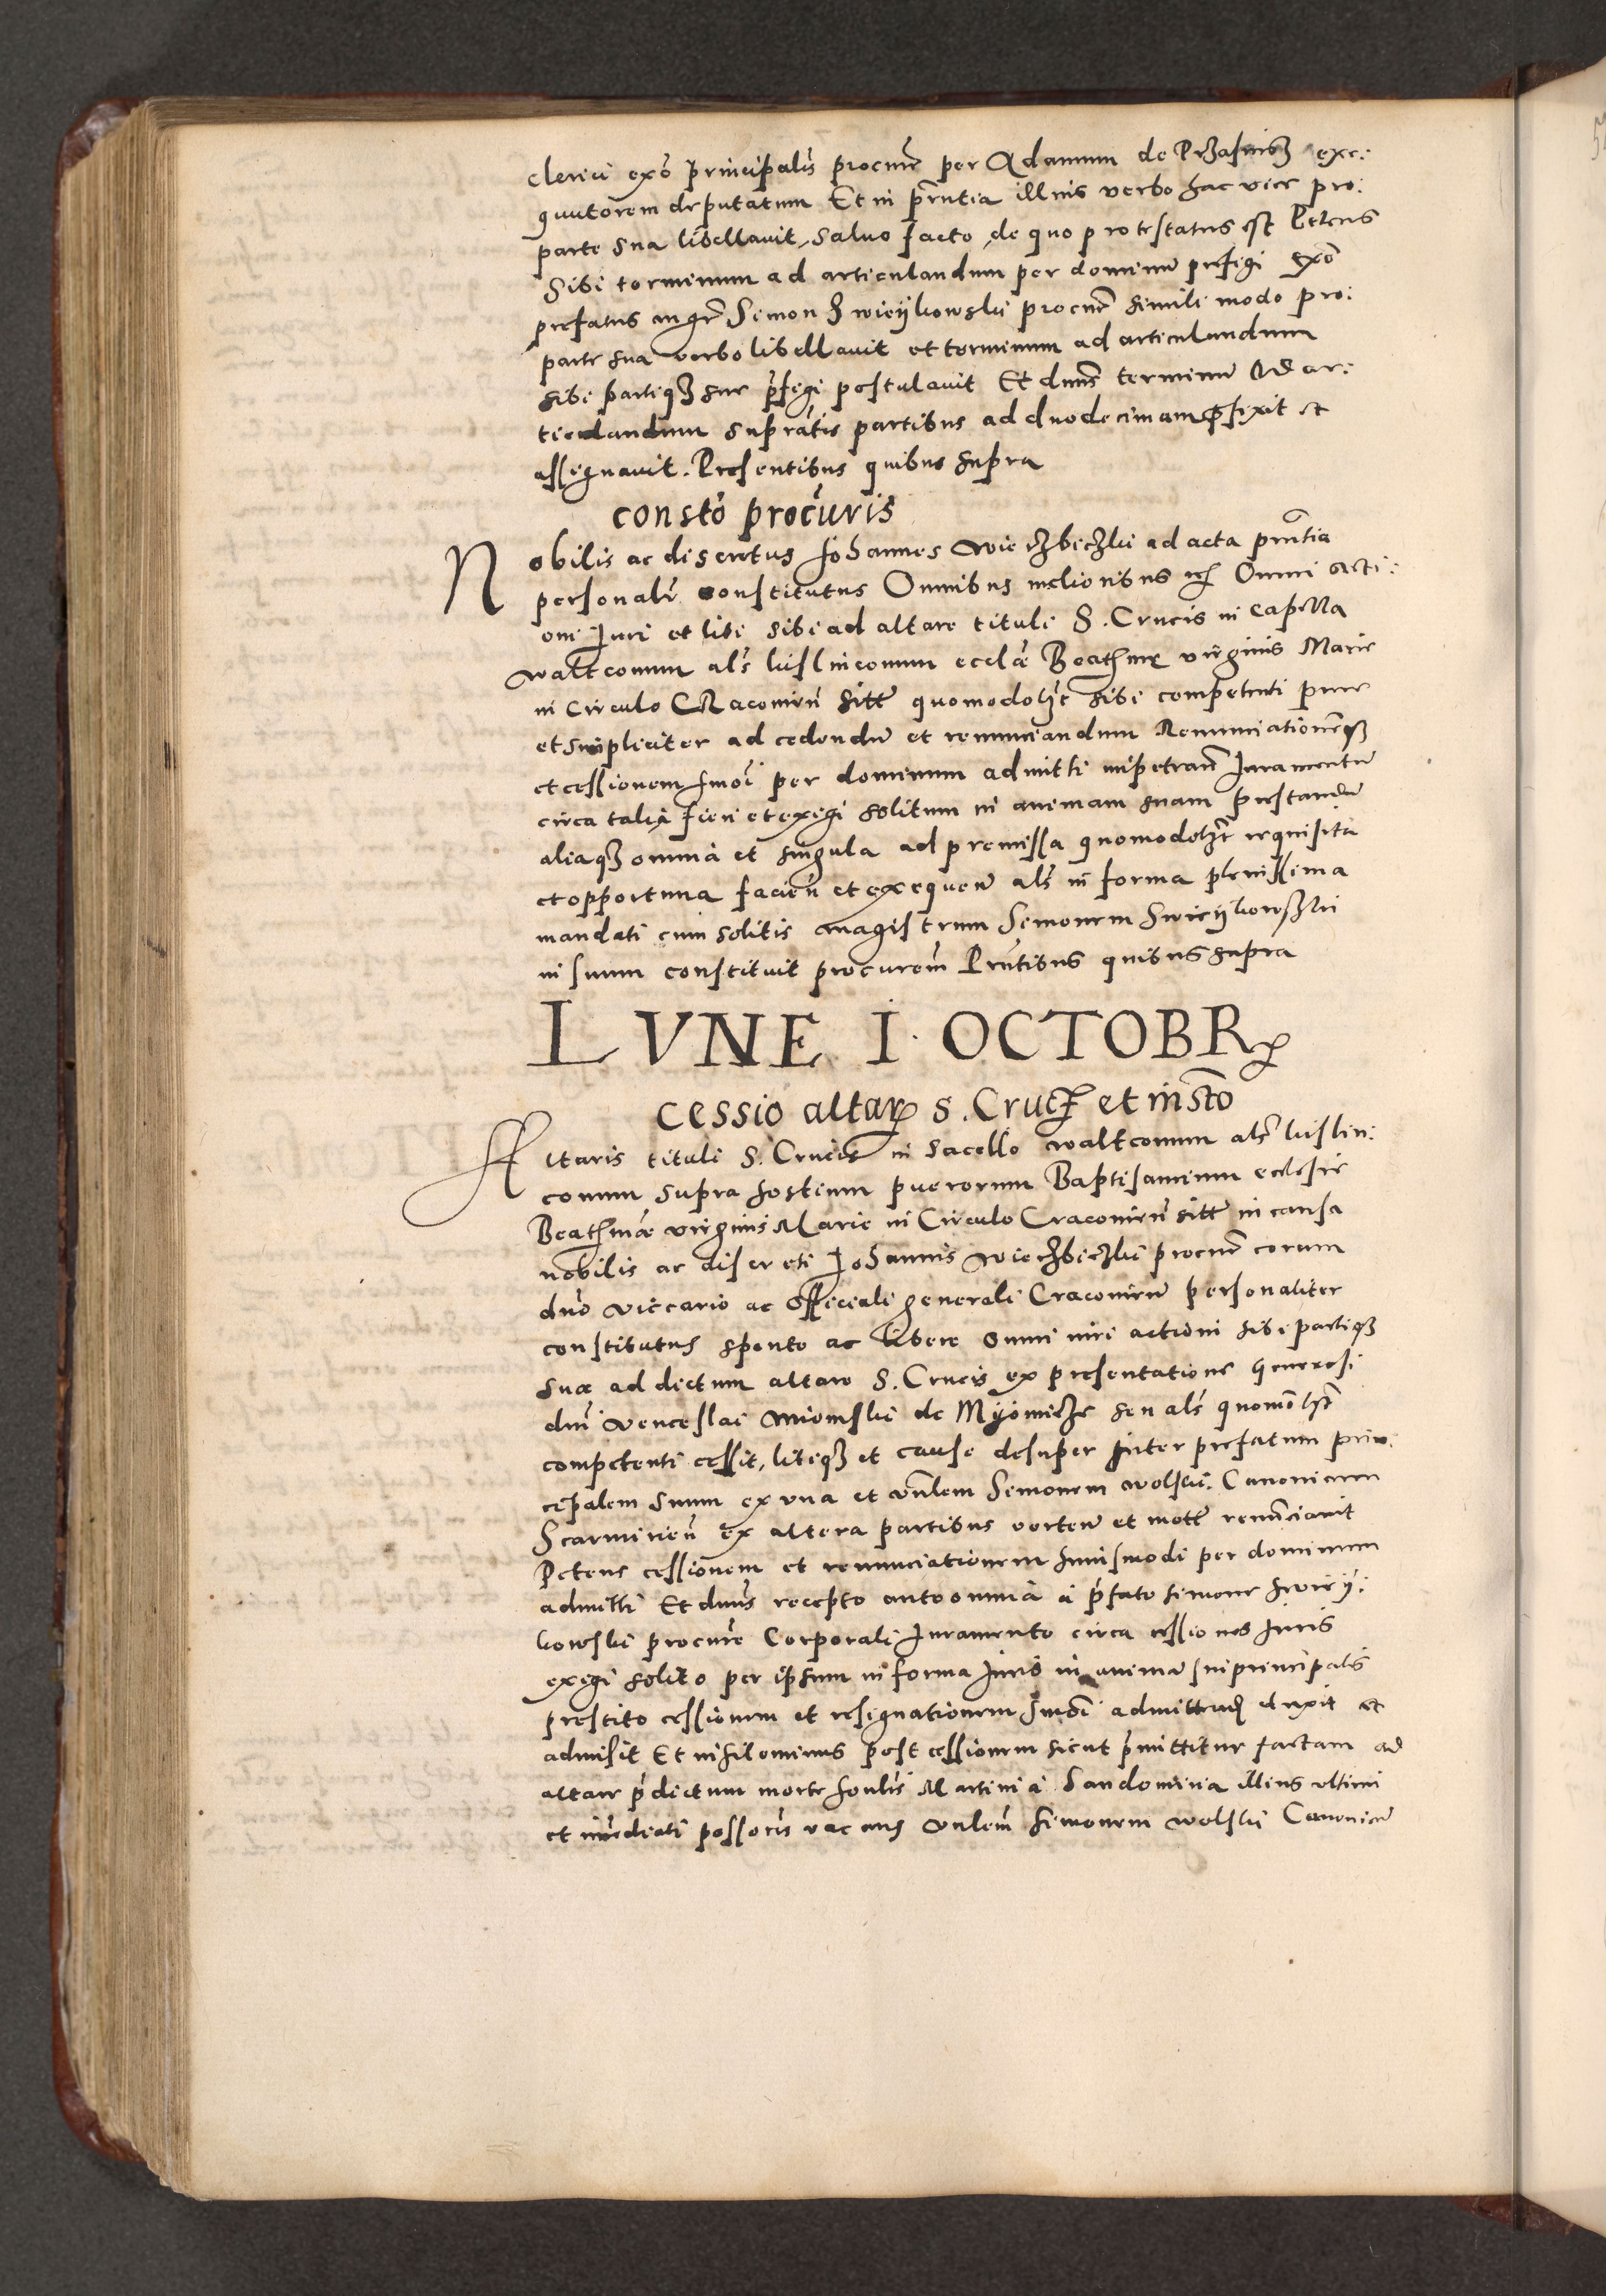 clerici exõ principalis procure per Adamum de Przasnisz exe:
quutorem deputatum Et in prentia illius verbo hac vice pro:
parte sua libellavit, salvo facto, de quo protestatus est Petens
Sibi terminum ad articulandum per dominũ prefigi Exõ
prefatus mgr Simon Zwieÿkowski procure simili modo pro:
parte sua verbo libellavit et terminum ad articulandum
sibi partiqz sue prefigi postulavit Et dnus terminũ Ad ar:
ticulandum supratis partibus ad duodecimam prefixit et
assignavit. Presentibus quibus supra
constõ procuris
Nobilis ac discretus Johannes Wierzbiczki ad acta prntia
personalr constitutus Omnibus melioribus etc Omni acti:
oni Juri et liti sibi ad altare tituli S. Crucis in Capella
waltconum als kislinconum ecclæ Beatissime virginis Marie
in Circulo Cracovien sitt quomodolzt sibi competenti pure
et simpliciter ad cedendũ et renunciandum Renunciationemqz
et cessionem hmoi per dominum admitti impetrand Juramentũ
circa talia fieri et exigi solitum in animam suam prestandũ
aliaqz omnia et singula ad premissa quomodolzt requisita
et opportuna faciend et exequend als in forma plenissima
mandati cum solitis magistrum Simonem Swieÿkowszki
in suum constituit procurem Prntibus quibus supra
LVNE I. OCTOBR
Cessio altaris S. Crucis et instõ
Altaris tituli S. Crucis in sacello waltconum als kislin:
conum supra hostium puerorum Baptisantium ecclesie
Beatissimæ virginis Marie in Circulo Cracovien sitt in causa
nobilis ac discreti Johannis Wierzbiczki procure coram
dno viccario ac Officiali generali Cracovien personaliter
constitutus sponte ac libere omni iuri actioni sibi partiqz
suæ ad dictum altare S. Crucis ex presentatione Generosi
dni Venceslai Miomski de Mÿomicze seu als quomolzt
competenti cessit, litiqz et cause desuper inter prefatum prin:
cipalem suum ex una et vnlem Simonem Wolski Canonicum
Scarmirien ex altera partibus verten et mott renunciavit
Petens cessionem et renunciationem huiusmodi per dominum
admitti Et dnus recepto ante omnia a prfato Simone Swieÿ:
kowski procure Corporali Juramento circa cessiones Juris
exigi solito per ipsum in forma Juris in animã sui principalis
prestito cessionem et resignationem hmoi admittend duxit et
admisit Et nihilominus post cessionem sicut prmittitur factam ad
altare prdictum morte honlis Martini a Sandomiria illius ultimi
et imediati possoris vacans vnlem Simonem Wolski Canonicũ